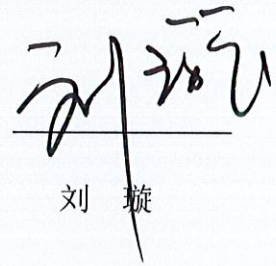 刘璇
刘 璇